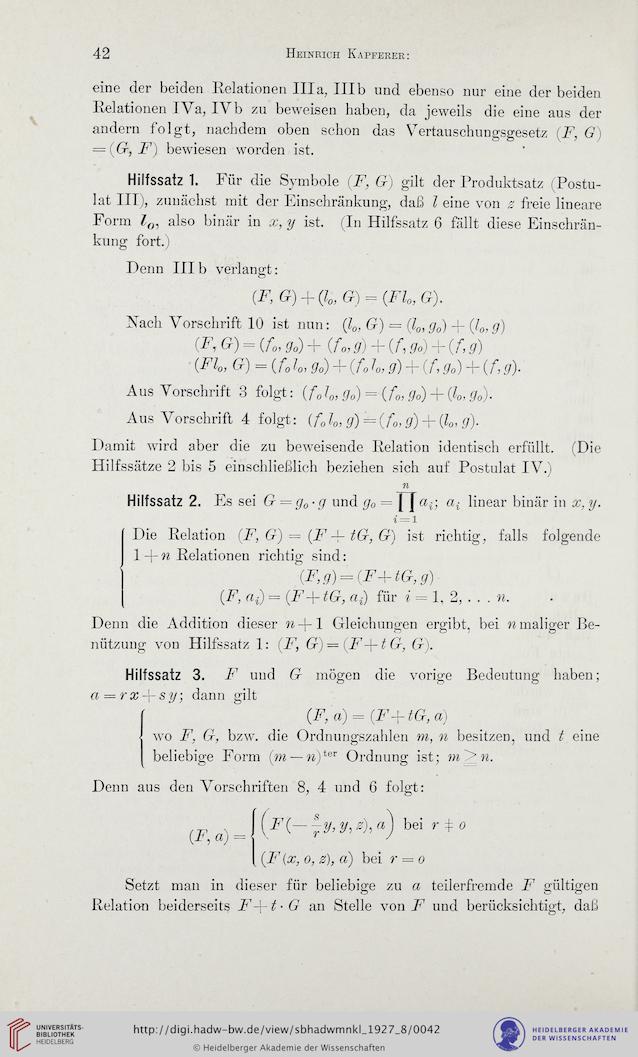 42 HEINRICH KAPFERER:
eine der beiden Relationen IIIa, IIIb und ebenso nur eine der beiden
Relationen IVa, IVb zu beweisen haben, da jeweils die eine aus der
andern folgt, nachdem oben schon das Vertauschungsgesetz (F, G)
= (G, F) bewiesen worden ist.
Hilfssatz 1. Für die Symbole (F, G) gilt der Produktsatz (Postu-
lat III), zunächst mit der Einschränkung, daß l eine von z freie lineare
Form l₀, also binär in x, y ist. (In Hilfssatz 6 fällt diese Einschrän-
kung fort.)
Denn IIIb verlangt:
(F, G) + (l₀, G) = (Fl₀, G).
Nach Vorschrift 10 ist nun: (l₀, G) = (l₀, g₀) + (l₀, g)
(F, G) = (f₀, g₀) + (f₀, g) + (f, g₀) + (f, g)
(Fl₀, G) = (f₀l₀, g₀) + (f₀l₀, g) + (f, g₀) + (f, g).
Aus Vorschrift 3 folgt: (f₀l₀, g₀) = (f₀, g₀) + (l₀, g₀).
Aus Vorschrift 4 folgt: (f₀l₀, g) = (f₀, g) + (l₀, g).
Damit wird aber die zu beweisende Relation identisch erfüllt. (Die
Hilfssätze 2 bis 5 einschließlich beziehen sich auf Postulat IV.)
Hilfssatz 2. Es sei G = g₀ · g und g₀ = ∏ⁿᵢ₌₁ aᵢ; aᵢ linear binär in x, y.
Die Relation (F, G) = (F + tG, G) ist richtig, falls folgende
1 + n Relationen richtig sind:
(F, g) = (F + tG, g)
(F, aᵢ) = (F + tG, aᵢ) für i = 1, 2, . . . n.
Denn die Addition dieser n + 1 Gleichungen ergibt, bei n maliger Be-
nützung von Hilfssatz 1: (F, G) = (F + tG, G).
Hilfssatz 3. F und G mögen die vorige Bedeutung haben;
a = rx + sy; dann gilt
(F, a) = (F + tG, a)
wo F, G, bzw. die Ordnungszahlen m, n besitzen, und t eine
beliebige Form (m — n)ᵗᵉʳ Ordnung ist; m ≧ n.
Denn aus den Vorschriften 8, 4 und 6 folgt:
(F, a) = { (F(— s/r y, y, z), a) bei r ≠ o
(F(x, o, z), a) bei r = o
Setzt man in dieser für beliebige zu a teilerfremde F gültigen
Relation beiderseits F + t · G an Stelle von F und berücksichtigt, daß
UNIVERSITÄTS-
BIBLIOTHEK
HEIDELBERG
http://digi.hadw-bw.de/view/sbhadwmnkl_1927_8/0042
© Heidelberger Akademie der Wissenschaften
HEIDELBERGER AKADEMIE
DER WISSENSCHAFTEN